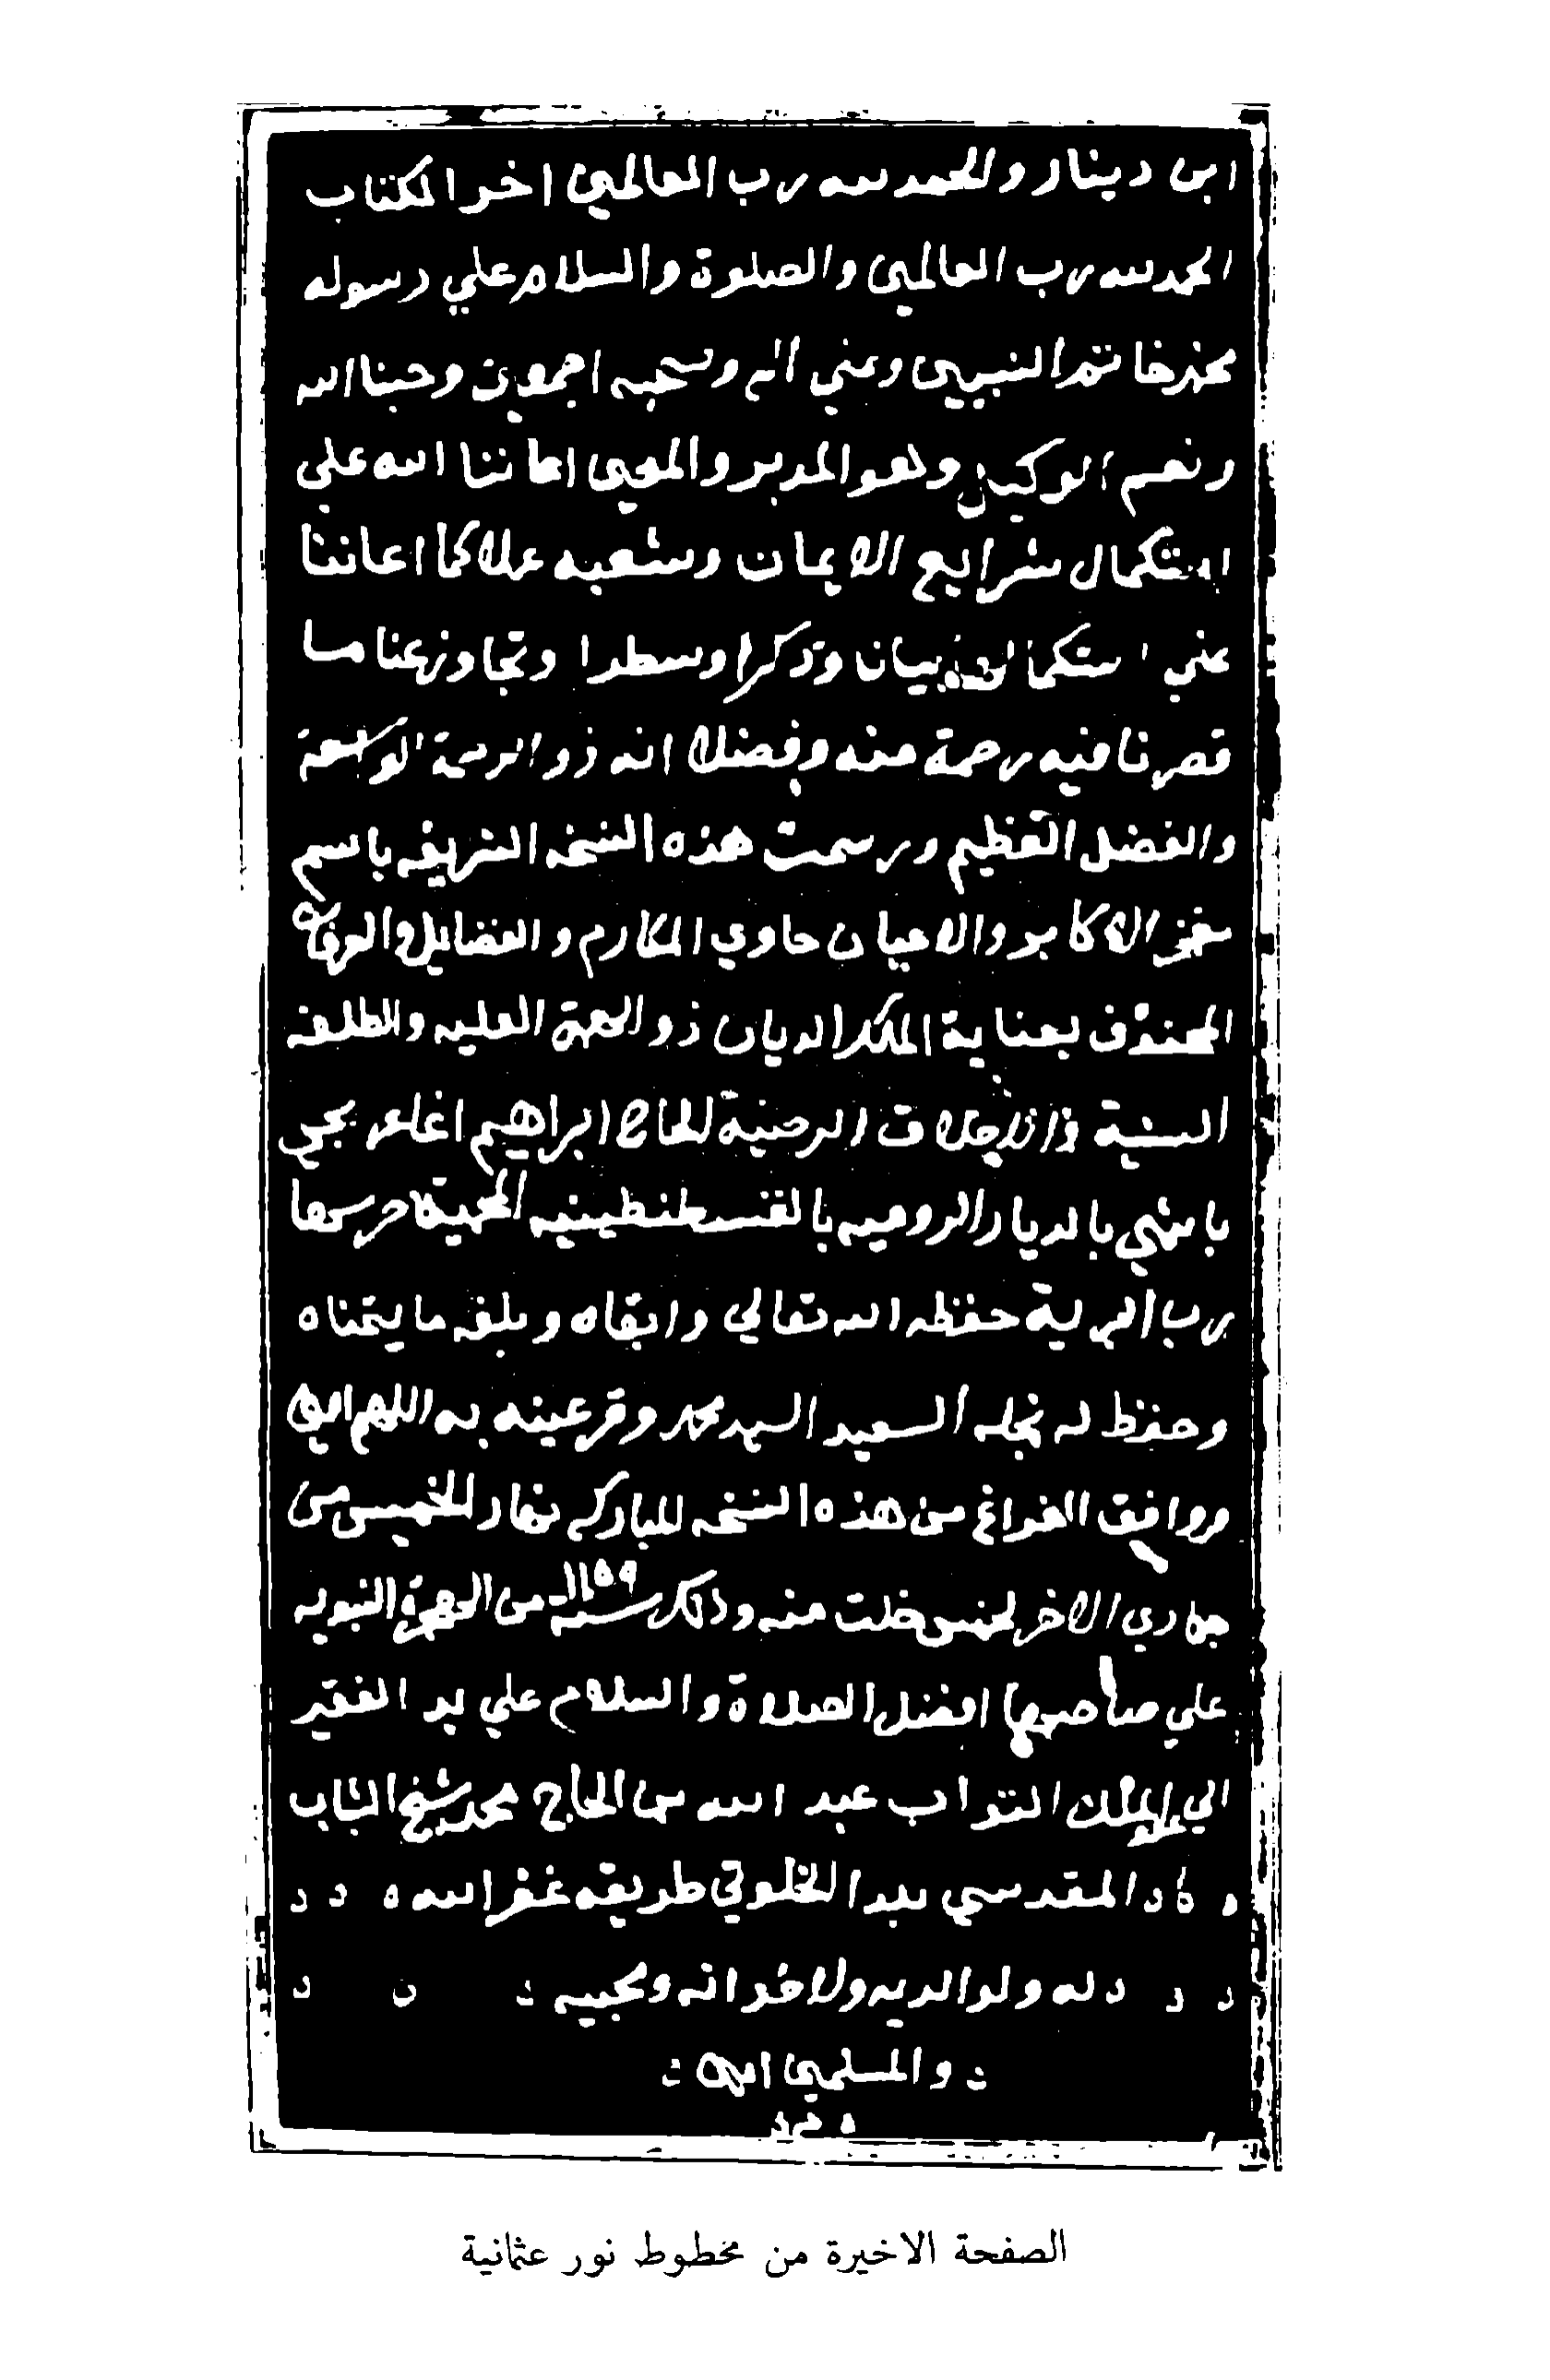 ابن دينار والحمد لله رب العالمين اخر الكتاب
الحمد لله رب العالمين والصلوة والسلام علي رسوله
محمد خاتم النبيين وعلي اله وصحبه اجمعين وحسبنا الله
ونعم الوكيل وهو المدبر والمعين اعاننا الله علي
استكمال شرايع الايمان وشعبه عملا كما اعاننا
علي استكمالها بيانا وذكرا وسطرا وتجاوز عنا ما
قصرنا فيه رحمة منه وفضلا انه ذو الرحمة الواسعة
والفضل العظيم ورسمت هذه النسخه الشريفه باسم
فخر الاكابر والاعيان حاوي المكارم والفضايل والعرفان
المحفوف بعناية الملك الديان ذو الهمة العليه والطلعه
السنية والاخلاق الرضية الحاج ابراهيم اغا
باشي بالديار الروميه بالقسطنطينيه المحمية حرسها
رب البرية حفظه الله تعالي وابقاه وبلغه ما يتمناه
وحفظ له نجله السعيد السيد محمد وقر عينه به اللهم امين
ووافق الفراغ من هذه النسخه المباركه نهار الخميس من
جمادي الاخر لخمس خلت منه وذلك سنة ١١٥٩ من الهجرة النبويه
علي صاحبها افضل الصلاة والسلام علي يد الفقير
الي الملك التواب عبد الله بن الحاج محمد شيخ الشباب
المقدسي بلدا الخلوتي طريقه غفر الله
له ولوالديه ولاخوانه ومحبيه
والمسلمين امين
الصفحة الاخيرة من مخطوط نور عثمانية